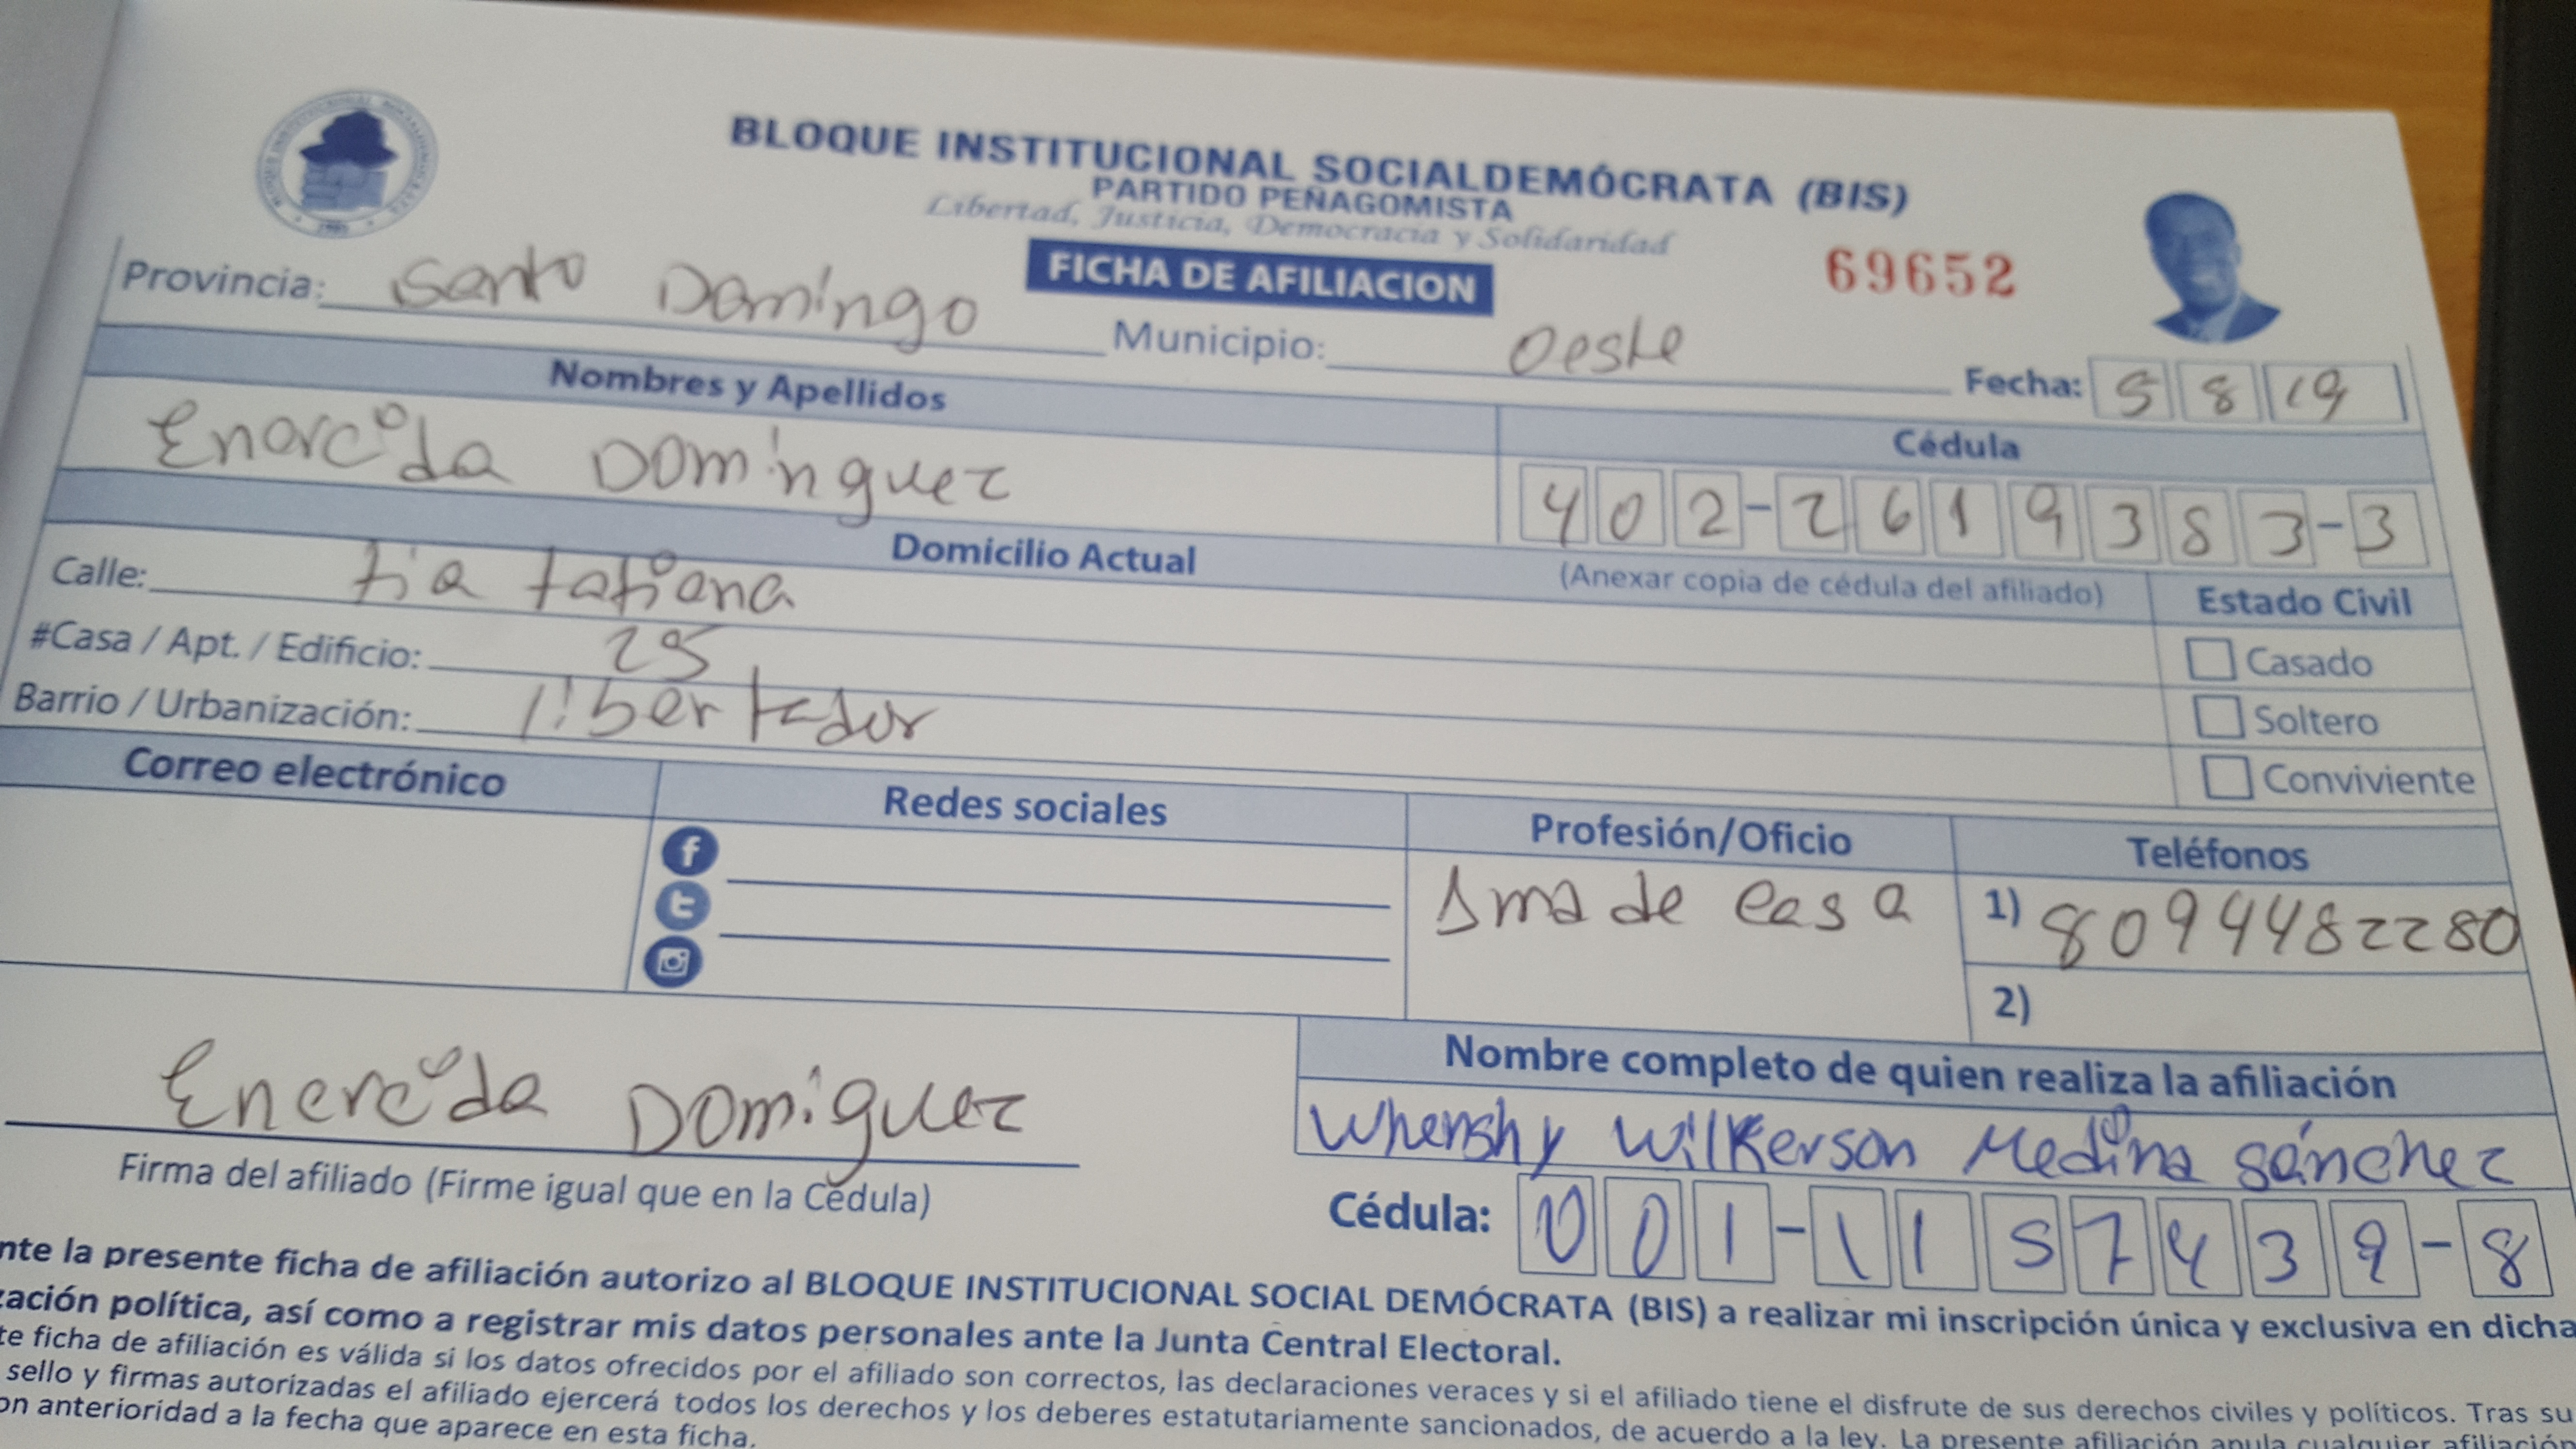 BLOQUE INSTITUCIONAL SOCIALDEMÓCRATA (BIS)
PARTIDO PEÑAGOMISTA
Libertad, Justicia, Democracia y Solidaridad
FICHA DE AFILIACION
69652
Provincia: Santo Domingo Municipio: Oeste Fecha: 5 8 19
Nombres y Apellidos
Cédula
Enorcida Dominguez
402-2619383-3
Domicilio Actual
(Anexar copia de cédula del afiliado)
Estado Civil
Calle: tia tatiana
Casado
#Casa / Apt. / Edificio: 25
Soltero
Barrio / Urbanización: libertador
Conviviente
Correo electrónico
Redes sociales
Profesión/Oficio
Teléfonos
Ama de casa
1) 8094482280
2)
Enercida Domiguez
Firma del afiliado (Firme igual que en la Cédula)
Nombre completo de quien realiza la afiliación
Whenshy Wilkerson Medina Sánchez
Cédula: 001-1157439-8
nte la presente ficha de afiliación autorizo al BLOQUE INSTITUCIONAL SOCIAL DEMÓCRATA (BIS) a realizar mi inscripción única y exclusiva en dicha
zación política, así como a registrar mis datos personales ante la Junta Central Electoral.
te ficha de afiliación es válida si los datos ofrecidos por el afiliado son correctos, las declaraciones veraces y si el afiliado tiene el disfrute de sus derechos civiles y políticos. Tras su
sello y firmas autorizadas el afiliado ejercerá todos los derechos y los deberes estatutariamente sancionados, de acuerdo a la ley. La presente afiliación anula cualquier afiliación
on anterioridad a la fecha que aparece en esta ficha.